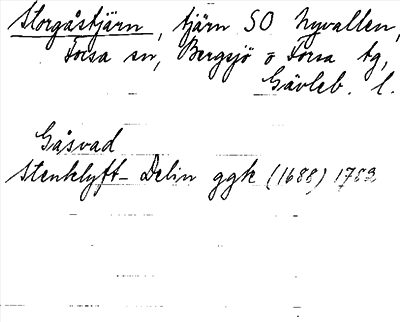 Storgåstjärn, tjärn SO Nyvallen,
Forsa sn, Bergsjö o Forsa tg,
Gävleb. l.
Gåsvad
Stenklyft- Delin ggk (1688) 1782